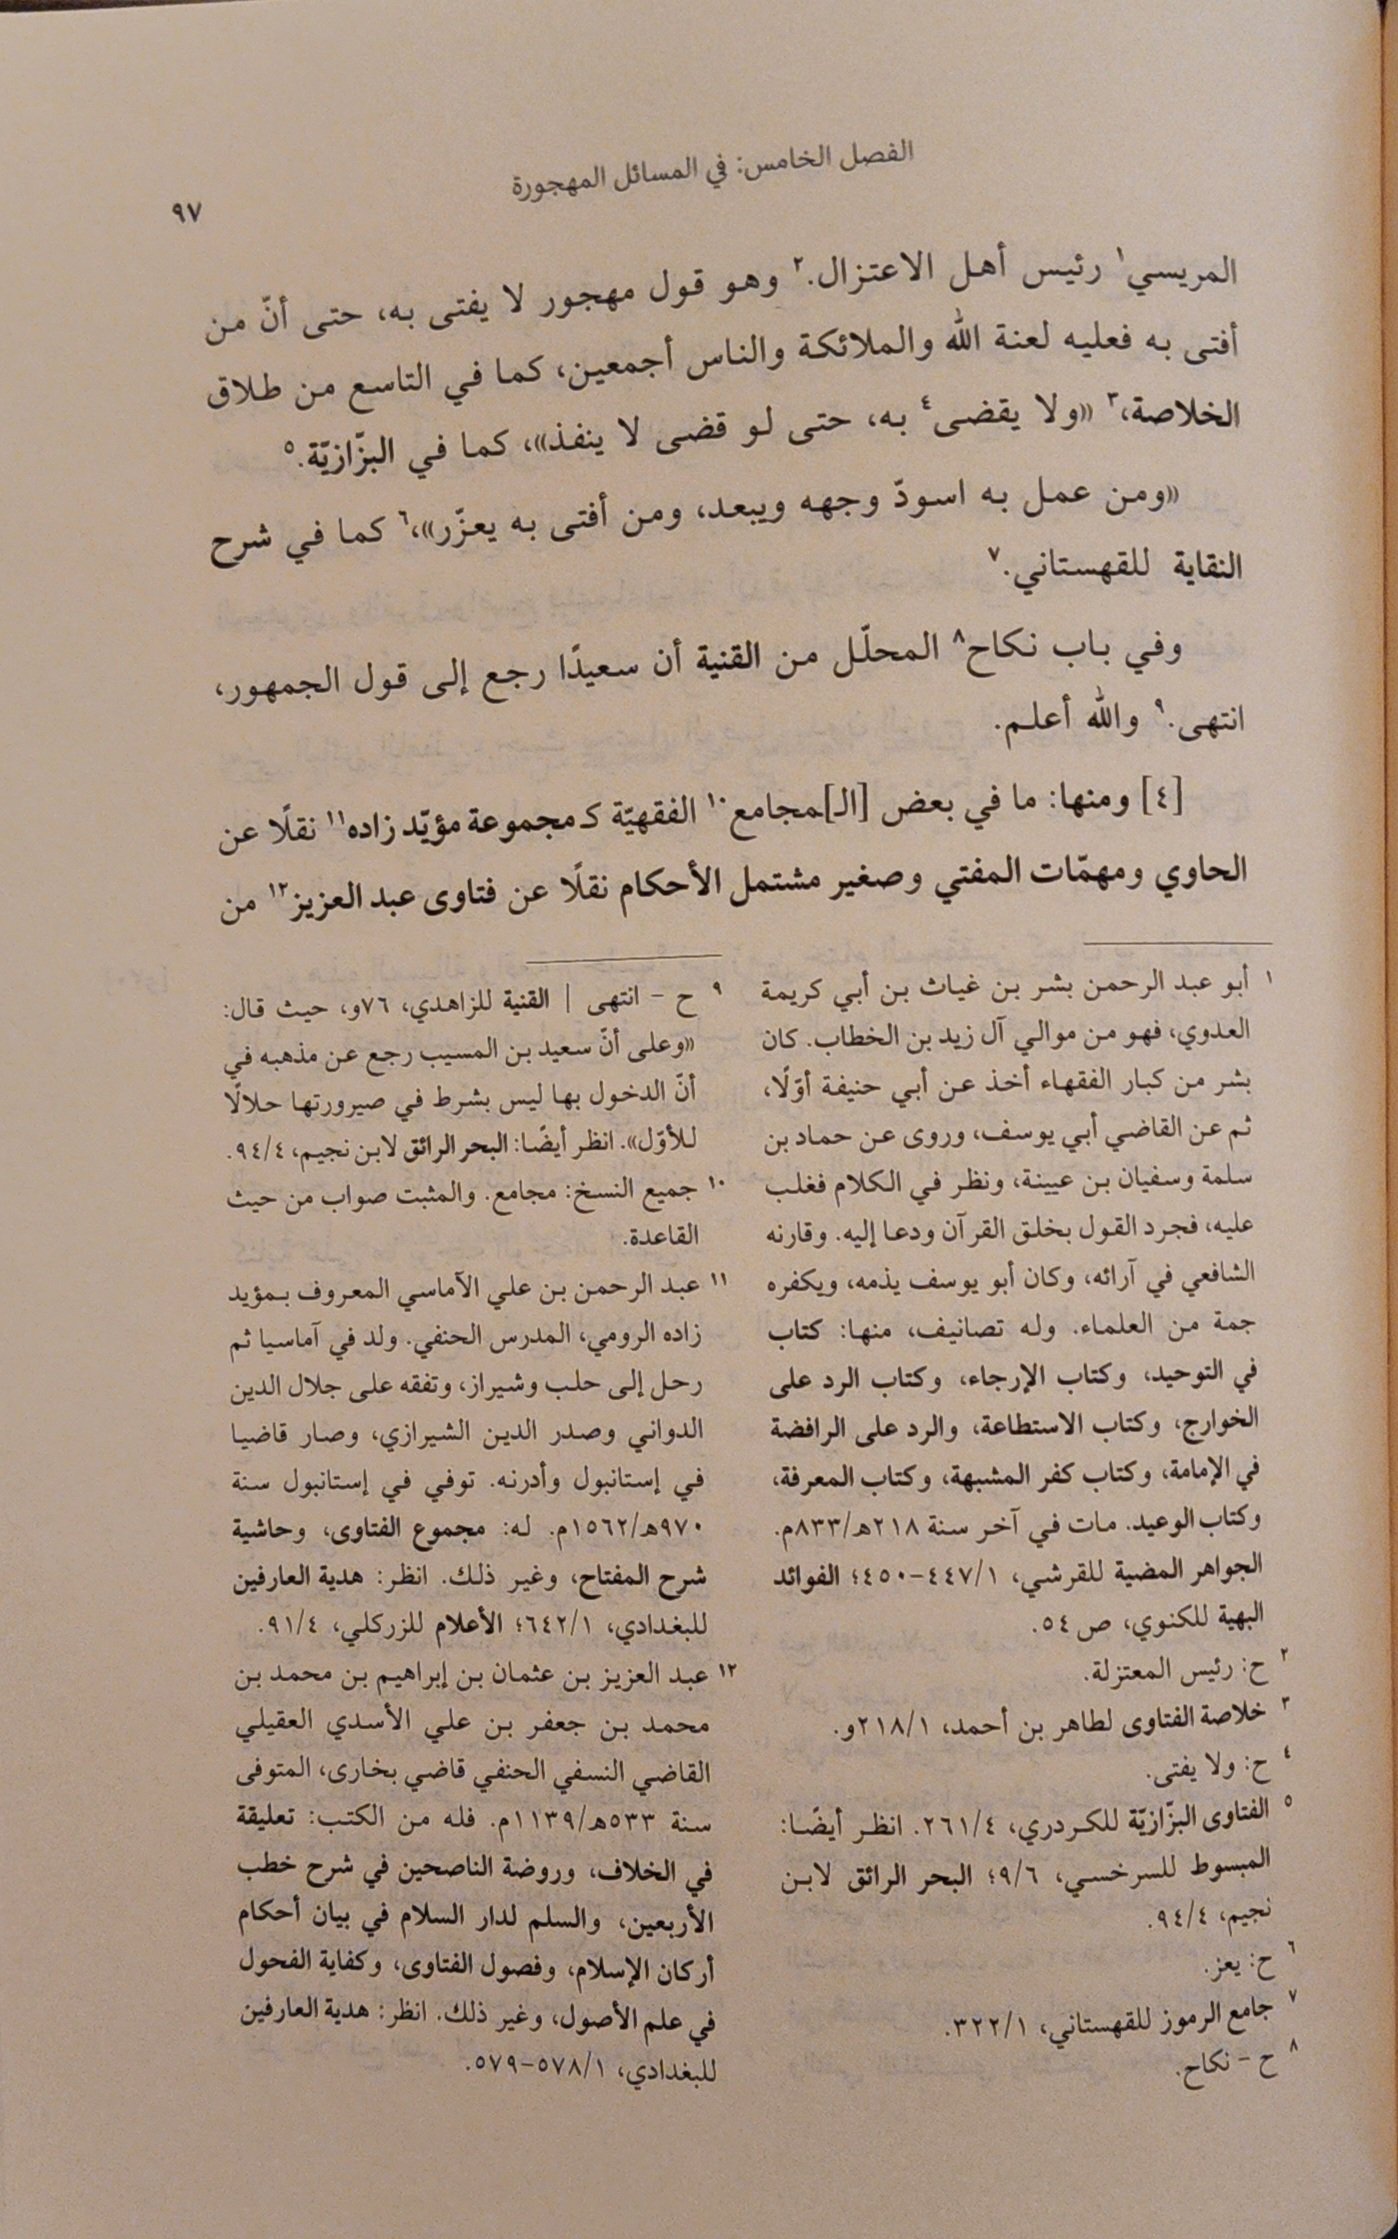 الفصل الخامس: في المسائل المهجورة
٩٧
المريسي١ رئيس أهل الاعتزال.٢ وهو قول مهجور لا يفتى به، حتى أنّ من
أفتى به فعليه لعنة الله والملائكة والناس أجمعين، كما في التاسع من طلاق
الخلاصة،٣ «ولا يقضى٤ به، حتى لو قضى لا ينفذ»، كما في البزّازيّة.٥
«ومن عمل به اسودّ وجهه ويبعد، ومن أفتى به يعزّر»،٦ كما في شرح
النقاية للقهستاني.٧
وفي باب نكاح٨ المحلّل من القنية أن سعيدًا رجع إلى قول الجمهور،
انتهى.٩ والله أعلم.
[٤] ومنها: ما في بعض [الـ]مجامع١٠ الفقهيّة كـ مجموعة مؤيّد زاده١١ نقلًا عن
الحاوي ومهمّات المفتي وصغير مشتمل الأحكام نقلًا عن فتاوى عبد العزيز١٢ من
١ أبو عبد الرحمن بشر بن غياث بن أبي كريمة
العدوي، فهو من موالي آل زيد بن الخطاب. كان
بشر من كبار الفقهاء أخذ عن أبي حنيفة أوّلًا،
ثم عن القاضي أبي يوسف، وروى عن حماد بن
سلمة وسفيان بن عيينة، ونظر في الكلام فغلب
عليه، فجرد القول بخلق القرآن ودعا إليه. وقارنه
الشافعي في آرائه، وكان أبو يوسف يذمه، ويكفره
جمة من العلماء. وله تصانيف، منها: كتاب
في التوحيد، وكتاب الإرجاء، وكتاب الرد على
الخوارج، وكتاب الاستطاعة، والرد على الرافضة
في الإمامة، وكتاب كفر المشبهة، وكتاب المعرفة،
وكتاب الوعيد. مات في آخر سنة ٢١٨هـ/٨٣٣م.
الجواهر المضية للقرشي، ٤٤٧/١-٤٥٠؛ الفوائد
البهية للكنوي، ص ٥٤.
٢ ح: رئيس المعتزلة.
٣ خلاصة الفتاوى لطاهر بن أحمد، ٢١٨/١و.
٤ ح: ولا يفتى.
٥ الفتاوى البزّازيّة للكردري، ٢٦١/٤. انظر أيضًا:
المبسوط للسرخسي، ٩/٦؛ البحر الرائق لابن
نجيم، ٩٤/٤.
٦ ح: يعز.
٧ جامع الرموز للقهستاني، ٣٢٢/١.
٨ ح - نكاح.
٩ ح - انتهى | القنية للزاهدي، ٧٦و، حيث قال:
«وعلى أنّ سعيد بن المسيب رجع عن مذهبه في
أنّ الدخول بها ليس بشرط في صيرورتها حلالًا
للأوّل». انظر أيضًا: البحر الرائق لابن نجيم، ٩٤/٤.
١٠ جميع النسخ: مجامع. والمثبت صواب من حيث
القاعدة.
١١ عبد الرحمن بن علي الآماسي المعروف بمؤيد
زاده الرومي، المدرس الحنفي. ولد في آماسيا ثم
رحل إلى حلب وشيراز، وتفقه على جلال الدين
الدواني وصدر الدين الشيرازي، وصار قاضيا
في إستانبول وأدرنه. توفي في إستانبول سنة
٩٧٠هـ/١٥٦٢م. له: مجموع الفتاوى، وحاشية
شرح المفتاح، وغير ذلك. انظر: هدية العارفين
للبغدادي، ٦٤٢/١؛ الأعلام للزركلي، ٩١/٤.
١٢ عبد العزيز بن عثمان بن إبراهيم بن محمد بن
محمد بن جعفر بن علي الأسدي العقيلي
القاضي النسفي الحنفي قاضي بخارى، المتوفى
سنة ٥٣٣هـ/١١٣٩م. فله من الكتب: تعليقة
في الخلاف، وروضة الناصحين في شرح خطب
الأربعين، والسلم لدار السلام في بيان أحكام
أركان الإسلام، وفصول الفتاوى، وكفاية الفحول
في علم الأصول، وغير ذلك. انظر: هدية العارفين
للبغدادي، ٥٧٨/١-٥٧٩.